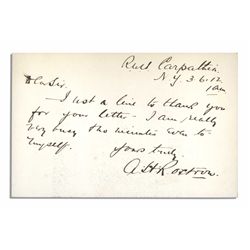 RMS Carpathia
N.Y. 3.6.12
1am
Dear Sir.
Just a line to thank you
for your letter - I am really
very busy. No minutes ever to
myself.
Yours truly.
A H Rostron.